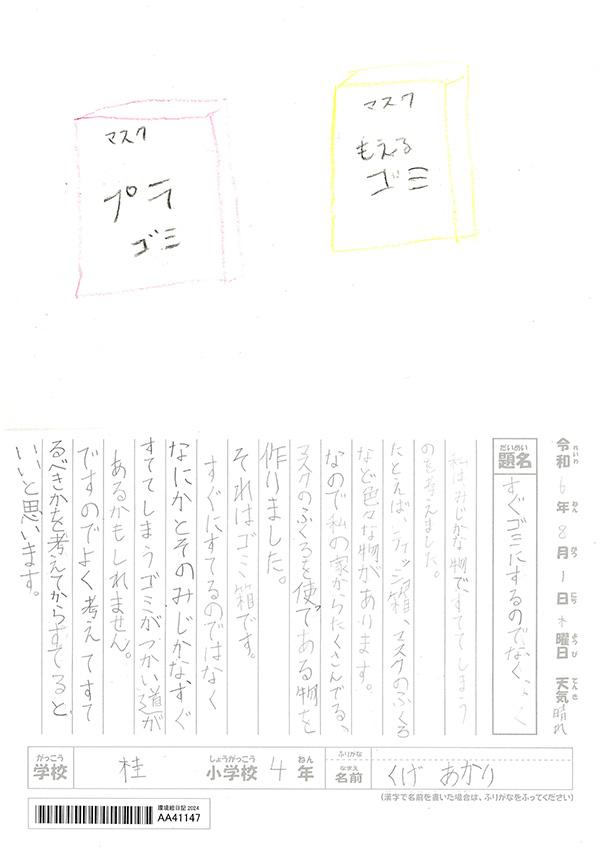 マスク
プラ
ゴミ
マスク
もえる
ゴミ
令和6年8月1日木曜日 天気晴れ
れいわ ねん がつ にち ようび てんき
だいめい
題名
すぐゴミにするのでなく、
私はみじかな物ですててしまう
のを考えました。
たとえば、ティッシュ箱、マスクのふくろ
など色々な物があります。
なので私の家からたくさんでる、
マスクのふくろを使である物を
作りました。
それはゴミ箱です。
すぐにすてるのではなく
なにかとそのみじかな、すぐ
すててしまうゴミがつかい道が
あるかもしれません。
ですのでよく考えてすて
るべきかを考えてからすてると
いいと思います。
がっこう
学校
桂
しょうがっこう
小学校
4
ねん
年
ふりがな
なまえ
名前
くげ あかり
(漢字で名前を書いた場合は、ふりがなをふってください)
環境絵日記2024
AA41147